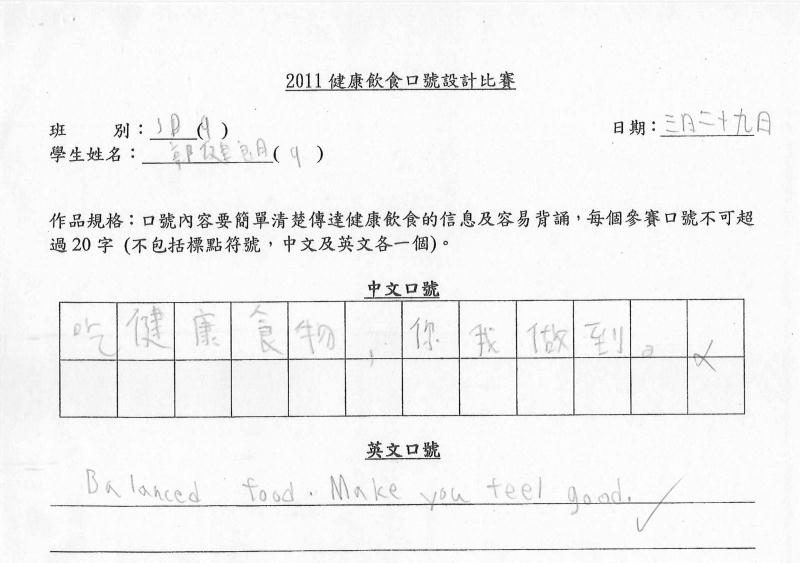 2011 健康飲食口號設計比賽
班 別：1D ( 9 )
日期：三月二十九日
學生姓名：鄭健朗 ( 9 )
作品規格：口號內容要簡單清楚傳達健康飲食的信息及容易背誦，每個參賽口號不可超
過 20 字 (不包括標點符號，中文及英文各一個)。
中文口號
吃健康食物，你我做到。
英文口號
Balanced food. Make you feel good.